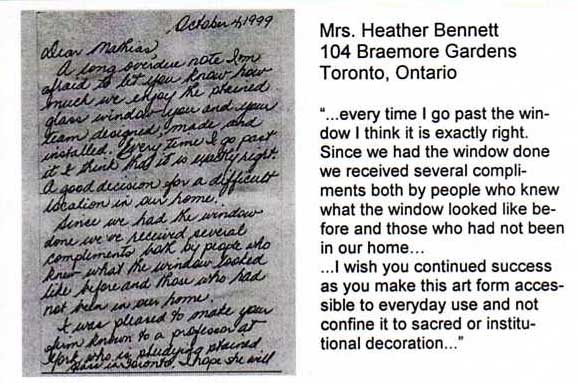 October 4, 1999
Dear Mathias
A long overdue note I'm
afraid to let you know how
much we enjoy the stained
glass window you and your
team designed, made, and
installed. Every time I go past
it I think that it is exactly right.
A good decision for a difficult
location in our home.
Since we had the window
done we've received several
compliments both by people who
knew what the window looked
like before and those who had
not been in our home.
I was pleased to make your
firm known to a professor at
York who is studying stained
glass in Toronto. I hope she will
Mrs. Heather Bennett
104 Braemore Gardens
Toronto, Ontario
“...every time I go past the win-
dow I think it is exactly right.
Since we had the window done
we received several compli-
ments both by people who knew
what the window looked like be-
fore and those who had not been
in our home...
...I wish you continued success
as you make this art form acces-
sible to everyday use and not
confine it to sacred or institu-
tional decoration...”